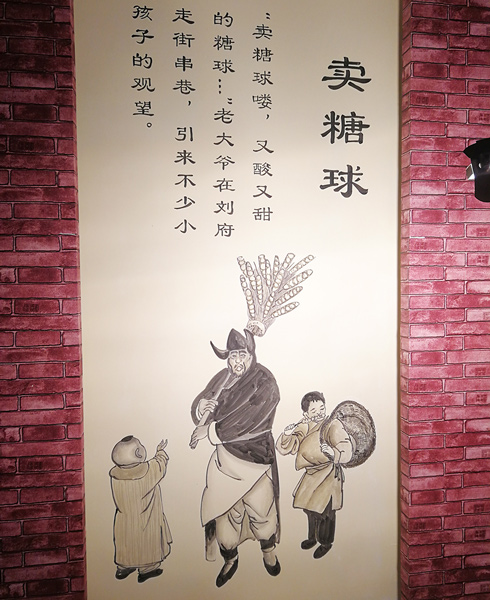 卖糖球
“卖糖球喽，又酸又甜
的糖球…”老大爷在刘府
走街串巷，引来不少小
孩子的观望。